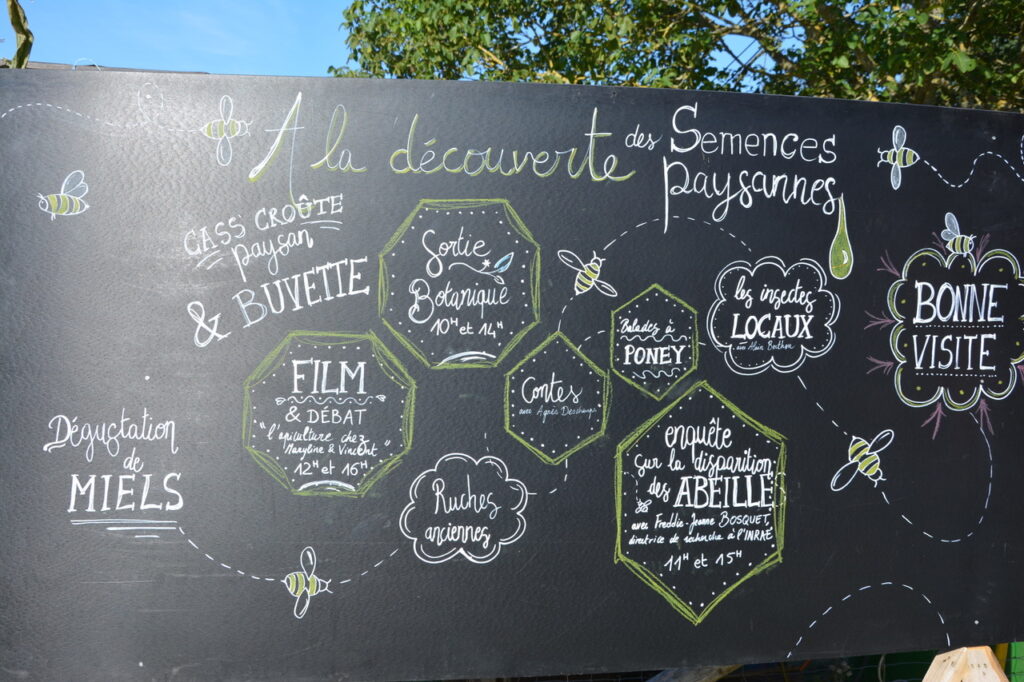 A la découverte des Semences
paysannes
CASS'CROÛTE
paysan
& BUVETTE
Sortie
Botanique
10H et 14H
FILM
& DÉBAT
"l'apiculture chez
Maryline & Vincent"
12H et 16H
Dégustation
de
MIELS
Ruches
anciennes
Contes
avec Agnès Deschamps
Balades à
PONEY
les insectes
LOCAUX
avec Alain Berthon
enquête
sur la disparition
des ABEILLE
avec Freddie-Jeanne BOSQUET,
directrice de recherche à l'INRAE
11H et 15H
BONNE
VISITE